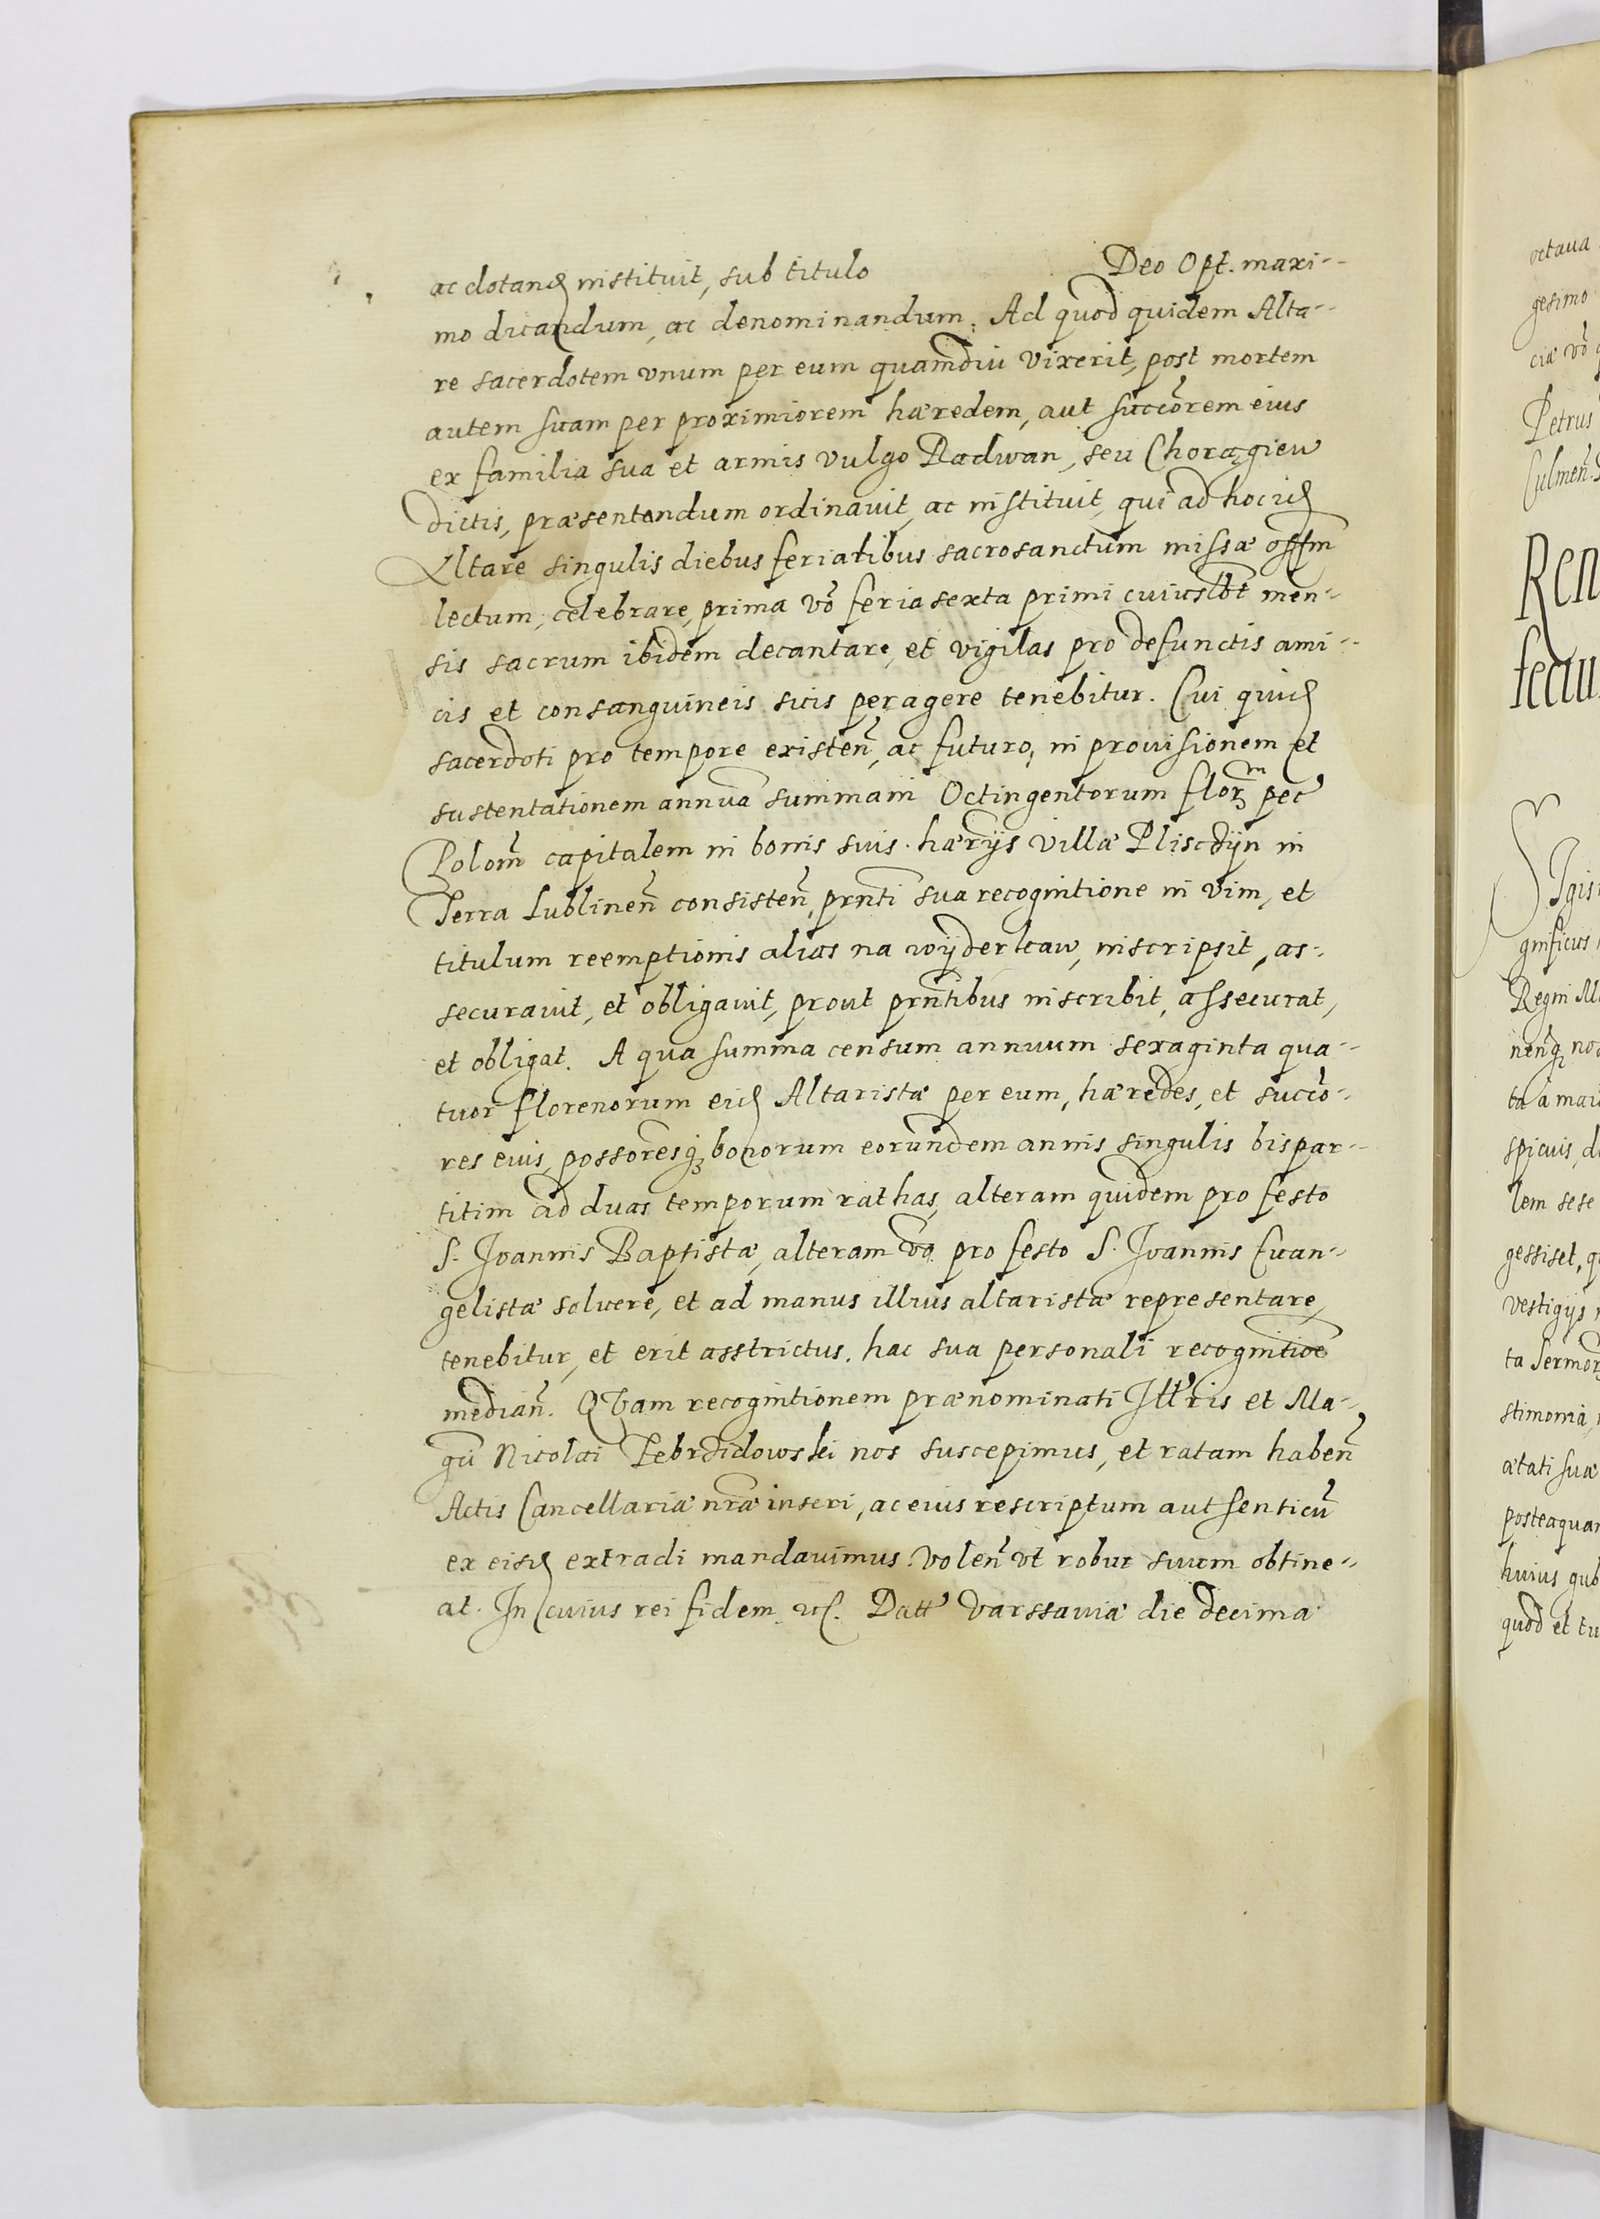 ac dotand instituit, sub titulo Deo Opt. maxi-
mo dicandum, ac denominandum. Ad quod quidem Alta-
re sacerdotem vnum per eum quamdiu vixerit, post mortem
autem suam per proximiorem hæredem, aut succōrem eius
ex familia sua et armis vulgo Radwan, seu Chorągiew
dictis, præsentandum ordinauit, ac instituit, qui ad hoc id
Altare singulis diebus feriatibus sacrosanctum missæ offm
lectum, celebrare, prima vō feria sexta primi cuiuslbt men-
sis sacrum ibidem decantare, et vigilas pro defunctis ami-
cis et consanguineis suis peragere tenebitur. Cui quid
sacerdoti pro tempore existen̄, ac futuro, in prouisionem et
sustentationem annuā summam Octingentorum florm pec
Polom̄ capitalem in bonis suis hærijs villæ Plisczyn in
Terra Lublinen̄ consisten̄, prn̄ti sua recognitione in vim, et
titulum reemptionis alias na wÿderkaw, inscripsit, as-
securauit, et obligauit, prout prn̄tibus inscribit, assecurat,
et obligat. A qua summa censum annuum sexaginta qua-
tuor florenorum eid Altaristæ per eum, hæredes, et succō-
res eius, possōresq bonorum eorundem annis singulis bispar-
titim ad duas temporum rathas, alteram quidem pro festo
S. Joannis Baptistæ, alteram vō pro festo S. Joannis Euan-
gelistæ soluere, et ad manus illius altaristæ representare,
tenebitur, et erit asstrictus, hac sua personali recognitioē
median̄. QVam recognitionem prænominati Illris et Ma-
gci Nicolai Zebrzidowski nos suscepimus, et ratam haben̄
Actis Cancellariæ nræ inseri, ac eius rescriptum authenticū
ex eisd extradi mandauimus. Volen̄ vt robur suum obtine-
at. In cuius rei fidem etc. Datt Varssauiæ die decima
octaua
gesimo
ciæ vō
Petrus
Culmen̄.
Ren
fectu
Sigis
gnificus
Regni Ma
nenq no
ta a mai
spicuis, d
lem sese
gessiset, q
vestigijs
ta Sermon
stimonia,
ætati suæ
posteaquam
huius gub
quod et tu